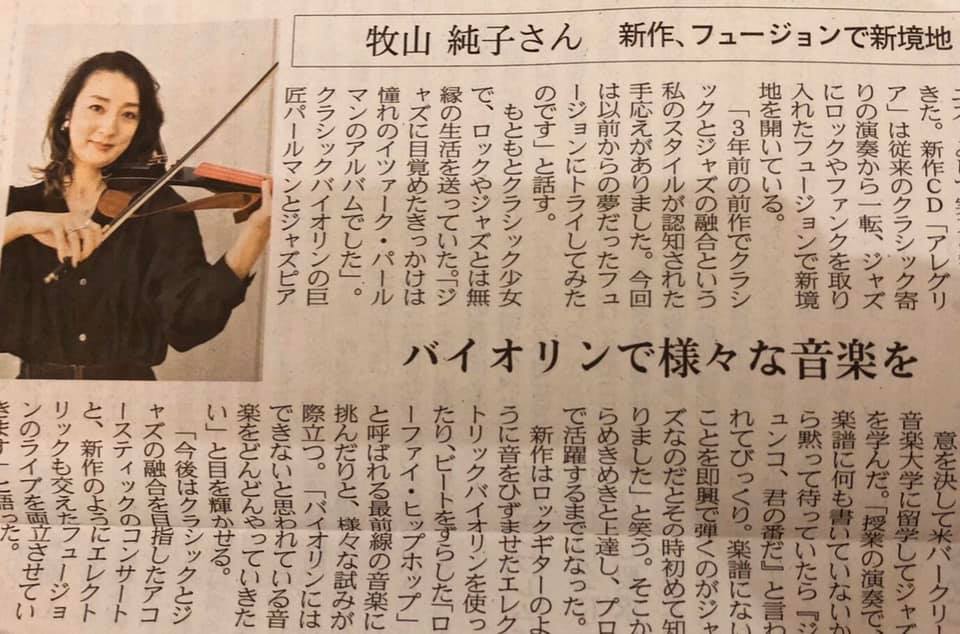 牧山 純子さん　新作、フュージョンで新境地
きた。新作CD「アレグリ
ア」は従来のクラシック寄
りの演奏から一転、ジャズ
にロックやファンクを取り
入れたフュージョンで新境
地を開いている。
「3年前の前作でクラシ
ックとジャズの融合という
私のスタイルが認知された
手応えがありました。今回
は以前からの夢だったフュ
ージョンにトライしてみた
のです」と話す。
もともとクラシック少女
で、ロックやジャズとは無
縁の生活を送っていた。「ジ
ャズに目覚めたきっかけは
憧れのイツァーク・パール
マンのアルバムでした」。
クラシックバイオリンの巨
匠パールマンとジャズピア
バイオリンで様々な音楽を
意を決して米バークリー
音楽大学に留学してジャズ
を学んだ。「授業の演奏で、
楽譜に何も書いていないか
ら黙って待っていたら『ジ
ュンコ、君の番だ』と言わ
れてびっくり。楽譜にない
ことを即興で弾くのがジャ
ズなのだとその時初めて知
りました」と笑う。そこか
らめきめきと上達し、プロ
で活躍するまでになった。
新作はロックギターのよ
うに音をひずませたエレク
トリックバイオリンを使っ
たり、ビートをずらした「ロ
ーファイ・ヒップホップ」
と呼ばれる最前線の音楽に
挑んだりと、様々な試みが
際立つ。「バイオリンには
できないと思われている音
楽をどんどんやっていきた
い」と目を輝かせる。
「今後はクラシックとジ
ャズの融合を目指したアコ
ースティックのコンサート
と、新作のようにエレクト
リックも交えたフュージョ
ンのライブを両立させてい
きます」と語った。